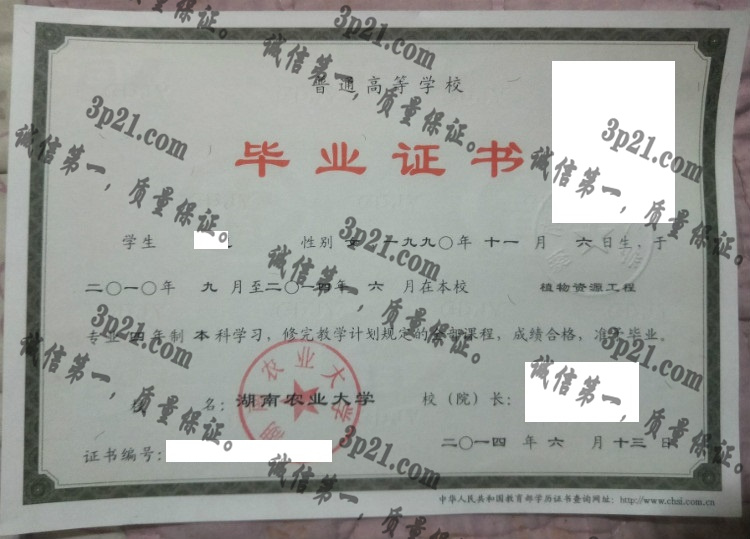 普通高等学校
毕业证书
学生 性别 女 一九九〇年 十一 月 六日生，于
二〇一〇年 九 月至二〇一四年 六 月在本校 植物资源工程
专业 四 年制 本 科学习，修完教学计划规定的全部课程，成绩合格，准予毕业。
校 名：湖南农业大学 校（院）长：
湖南农业大学
二〇一四 年 六 月 十三 日
证书编号：
中华人民共和国教育部学历证书查询网址：http://www.chsi.com.cn
质量保证。
3p21.com
诚信第一，质量保证。
3p21.com
诚信第一，质量保证。
3p21.com
诚信第一，
3p21.com
诚信第一，质量保证。
3p21.com
诚信第一，质量保证。
3p21.com
诚信第一，质量保证。
3p21.com
诚信第一，质量保证。